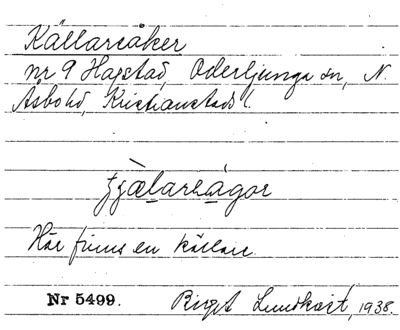 Källaråker
nr 9 Hagstad, Oderljunga sn, N.
Åsbo hd, Kristianstads l.
Här finns en källare.
Nr 5499. Birgit Lundkvist, 1938.